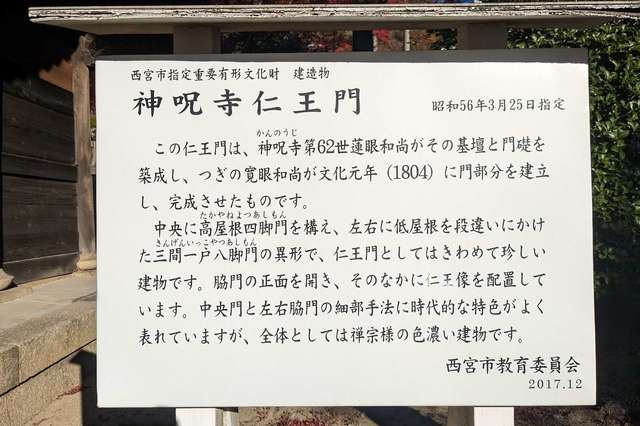 西宮市指定重要有形文化財　建造物
神呪寺仁王門　昭和56年3月25日指定
かんのうじ
この仁王門は、神呪寺第62世蓮眼和尚がその基壇と門礎を
築成し、つぎの寛眼和尚が文化元年（1804）に門部分を建立
し、完成させたものです。
たかやねよつあしもん
中央に高屋根四脚門を構え、左右に低屋根を段違いにかけ
さんげんいっこやつあしもん
た三間一戸八脚門の異形で、仁王門としてはきわめて珍しい
建物です。脇門の正面を開き、そのなかに仁王像を配置して
います。中央門と左右脇門の細部手法に時代的な特色がよく
表れていますが、全体としては禅宗様の色濃い建物です。
西宮市教育委員会
2017.12